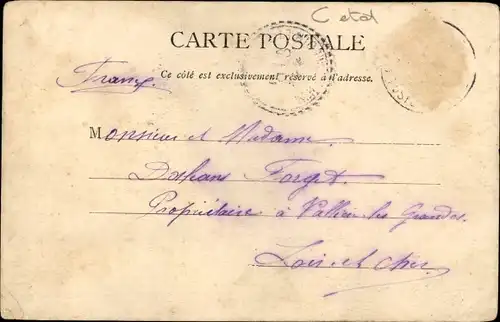 C etat
CARTE POSTALE
France.
Ce côté est exclusivement réservé à l'adresse.
Monsieur et Madame
Forget.
Propriétaire à Vallières les Grandes.
Loir et Cher